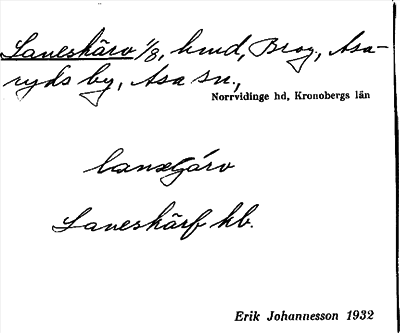 Laneskärv 1/8, hmd, Brog, Asa-
ryds by, Asa sn.,
Norrvidinge hd, Kronobergs län
Laneskärf kb.
Erik Johannesson 1932